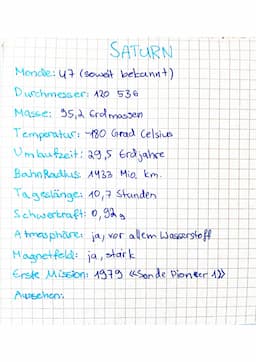 SATURN
Monde: 47 (soweit bekannt)
Durchmesser: 120 536
Masse: 95,2 Erdmassen
Temperatur: -180 Grad Celsius
Umlaufzeit: 29,5 Erdjahre
Bahn Radius: 1433 Mio. km.
Tageslänge: 10,7 Stunden
Schwerkraft: 0,92g
Atmosphäre: ja, vor allem Wasserstoff
Magnetfeld: ja, stark
Erste Mission: 1979 «Sonde Pioneer 1»
Aussehen: